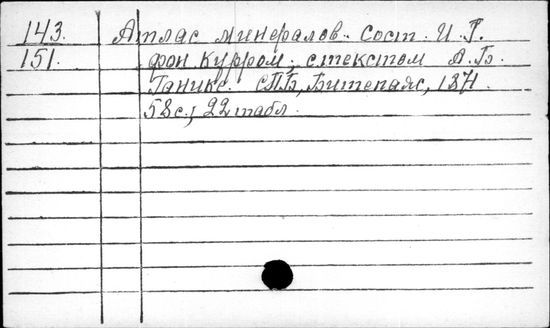 143. Атлас минералов. Сост. И.Г.
151. фон Курром, с текстом А.Б.
Ганике. СПБ, Битепаж, 1871.
58с., 22табл.